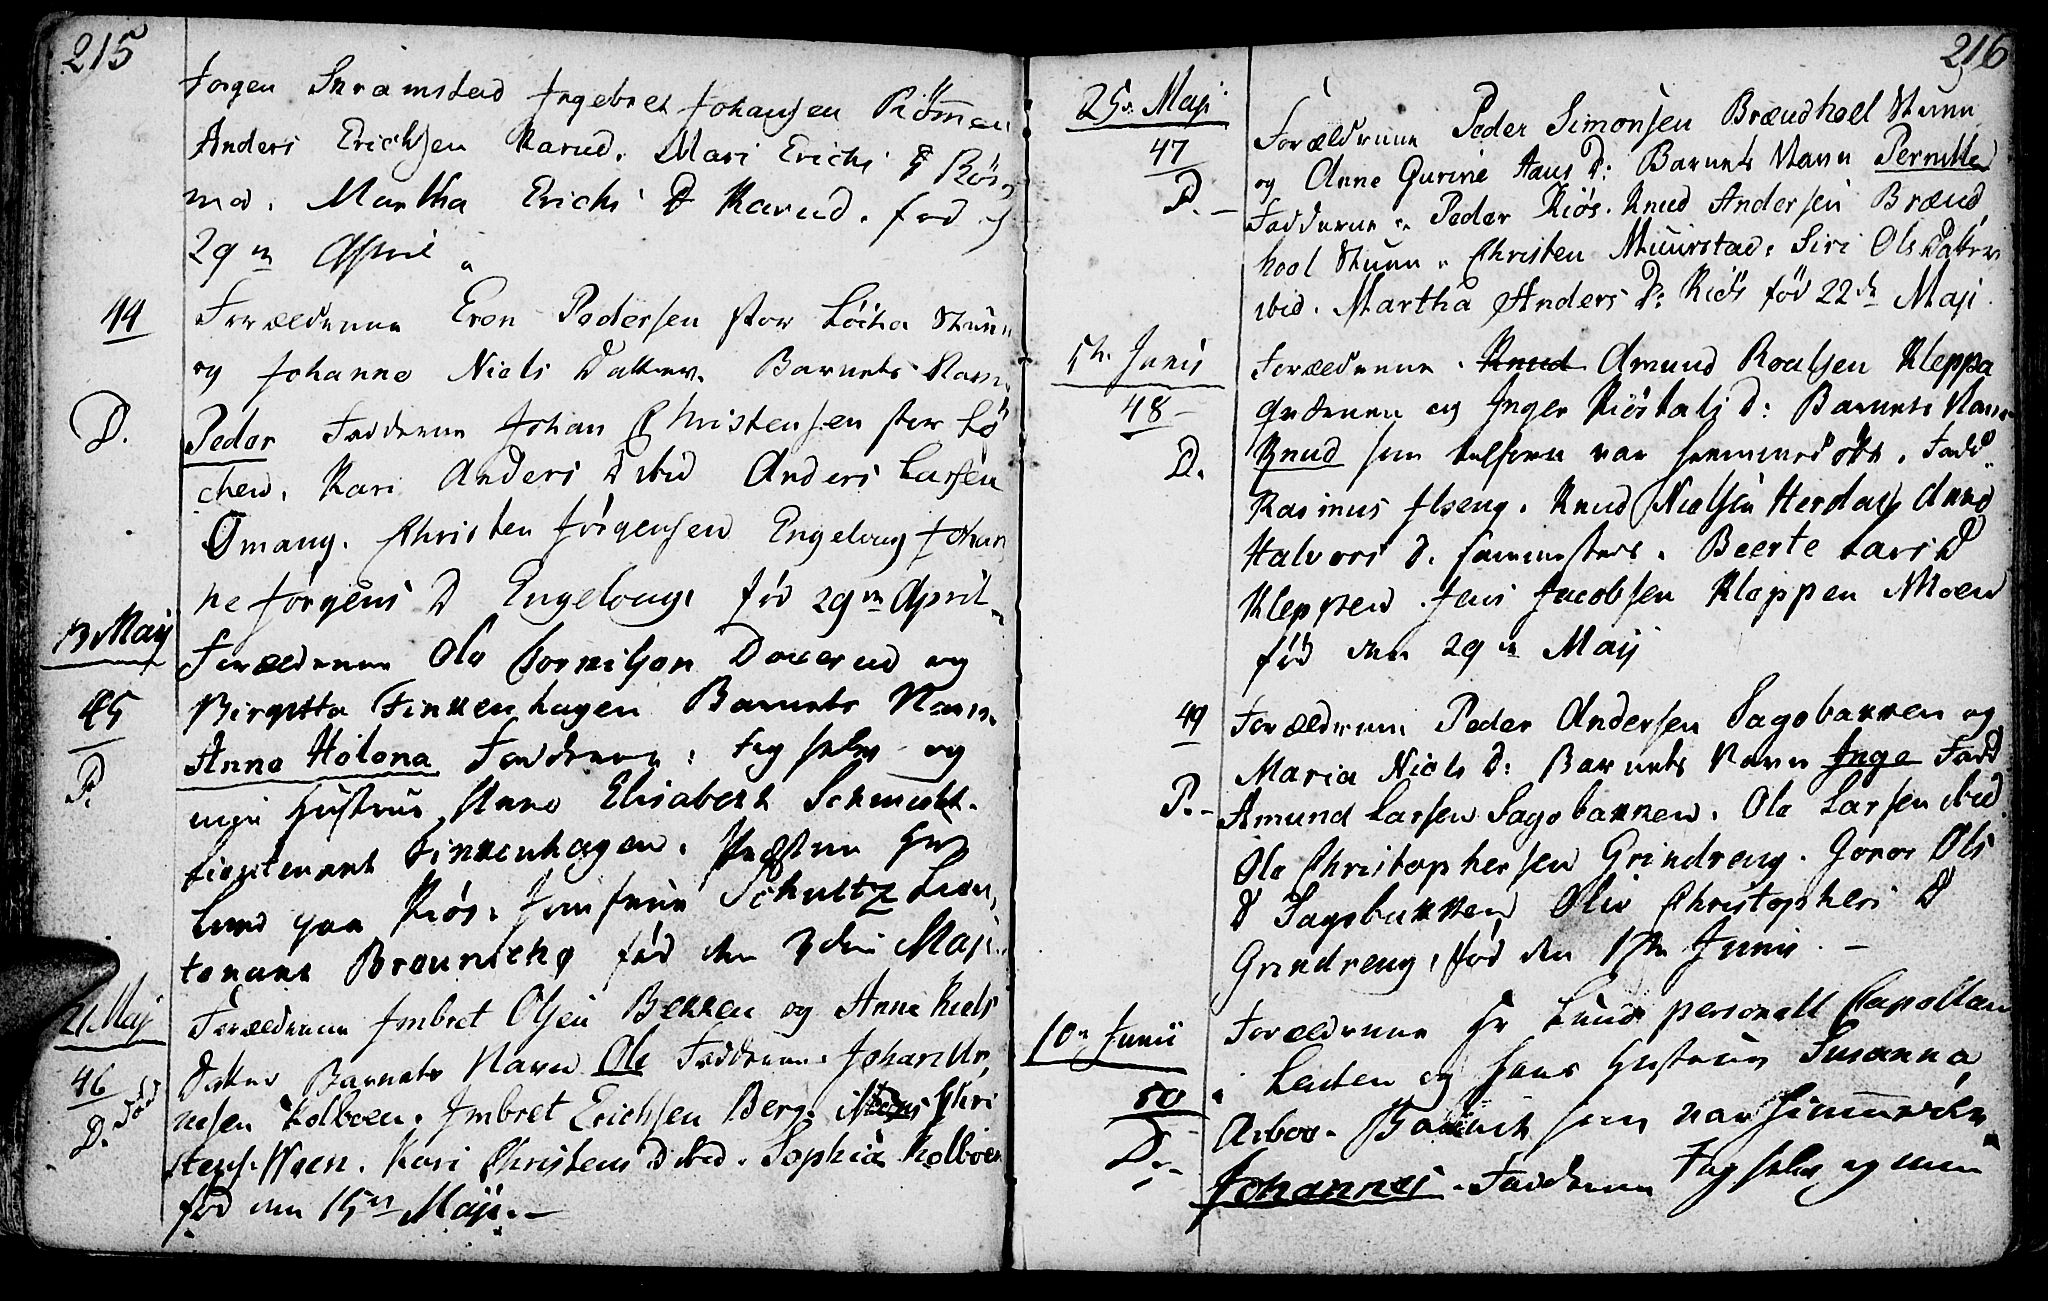 215
Jørgen Skramstad Ingebret Johansen Rømmen
Anders Erichsen Karud. Mari Erichs D Røm
ma. Martha Erichs D Karud. fød d
29de April
44
D.
Forældrene Even Pedersen stor Löcha
og Johanne Niels Datter. Barnets Navn
Peder Fadderne Johan Christensen stor Lö
chen. Kari Anders D ibid Anders Larsen
Omang. Christen Jörgensen Engeloug Johan
ne Jörgens D Engeloug. fød 29de April
13 Maij
45
P.
Forældrene Ole Cornilsen Daverud og
Birgitta Finkenhagen Barnets Navn
Anne Helena Fadderne: Jeg selv og
min Hustrue Elisabeth Schmidt.
Lieutenant Finkenhagen. Hr
Lund paa Kiøs. Jomfrue Schultz Lieu
tenant Brouniehg fød den 3die Maji
21 Maij
46
D. död
Forældrene Imbret Olsen Bekken og Anne Niels
Datter Barnets Navn Ole Fadderne. Johannes
nesen Kolboen. Imbret Erichsen Berg. Chri
stens. Moen. Kari Christens D ibid. Sophia Kolboen
fød den 15de Maji. —
216
25de Maji
47
P. —
Forældrene Peder Simonsen Brændhoel
og Anne Gurine Hans D: Barnets Navn Pernille
Fadderne. Peder Kiös. Knud Andersen Brænd
hoel Christen Muurstad. Siri Ols Datter
ibid. Martha Anders D: Kiös fød 22de Maji
5te Junii
48 —
D.
Forældrene. Knud Amund Roalsen Kleppa
Grderen og Inger D: Barnets Navn
Knud som var hiemmedøbt. Fadd
Rasmus Ilseng. Knud Nielsen Herdal
Halvors D. sammesteds. Beerte Lars D
Kleppen. Jens Jacobsen Kleppen Moen
fød den 29de Maij
49
P. —
Forældrene Peder Andersen Sagobakken og
Maria Niels D: Barnets Navn Inge Fadd
Amund Larsen Sagobakken. Ole Larsen ibid.
Ole Christophersen Grindreng. Goroe Ols
D Sagobakken Oliv Christophers D
Grindreng. fød den 1ste Junii. —
10de Junii
50
D. —
Forældrene Hr Lund personell Capellan
i Leuten og hans Hustrue Susanna
Arboe. Barnet som var hiemmedøbt
Johannes. Fadderne Jeg selv og min